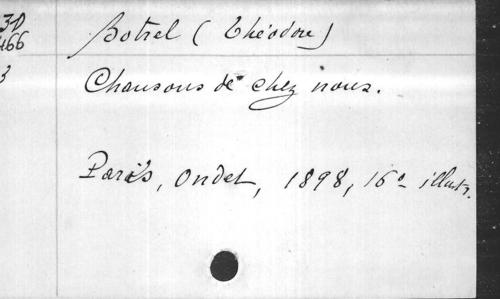 30 Botrel (Théodore)
466
3 Chansons de chez nous.
Paris, Ondet, 1898, 16º illustr.